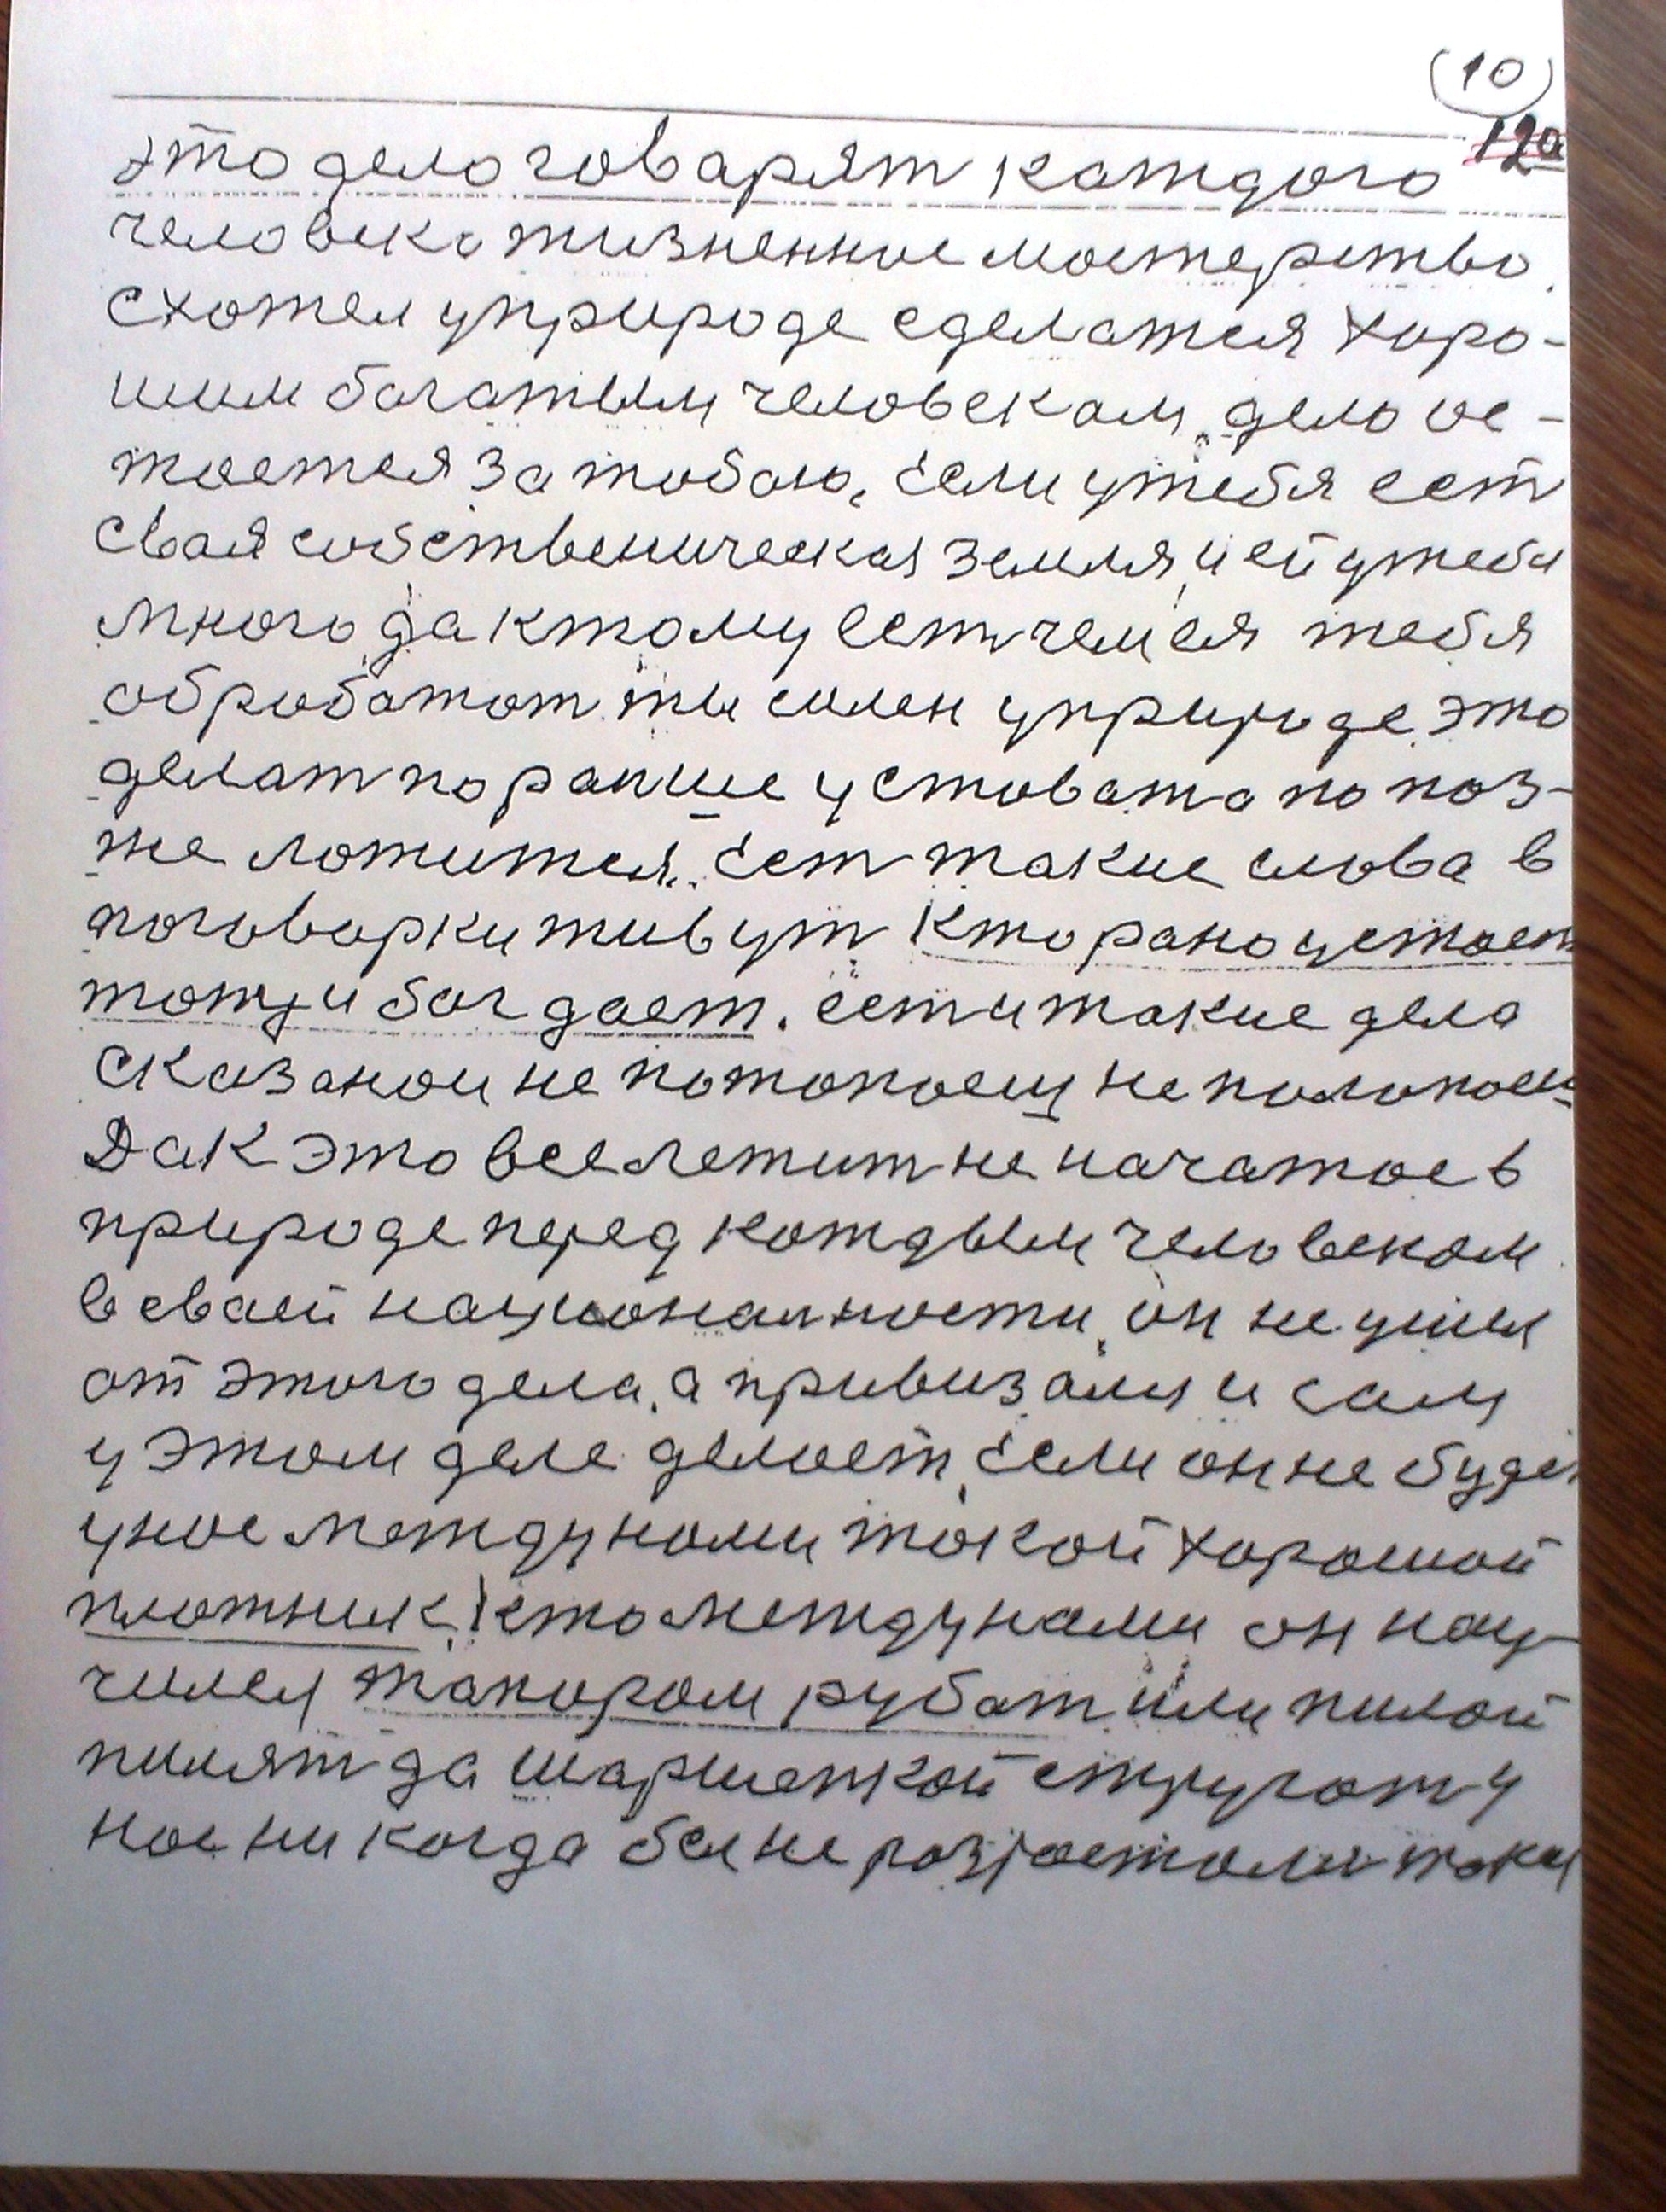 (10)
12а
это дело говарят каждого
человека жизненное мастерство.
Схотел у природе сделатся хоро-
шим багатым человекам, дело ос-
тоется за тобаю, Если у тебя ест
свая собственическая земля, и ей у тебя
много да к тому ест чем ея тебя
обработат ты силен у природе это
делат по раньше устават а по поз-
же ложится. Ест такие слова в
поговорки живут Кто рано устает
тому и бог дает. ест и такие дела
Сказанои не потопоеш не полопоеш
Дак это все лежит не начатое в
природе перед каждым человеком
в сваей национальности, он не ушел
от этого дела, а привизали и сам
у этом деле делает, Если он не будет
у нас между нами такой хорошой
плотник, кто между нами он нау-
чился тапором рубат или пилой
пилят да шаршепкой стругат у
нас ни когда бы не розрастались